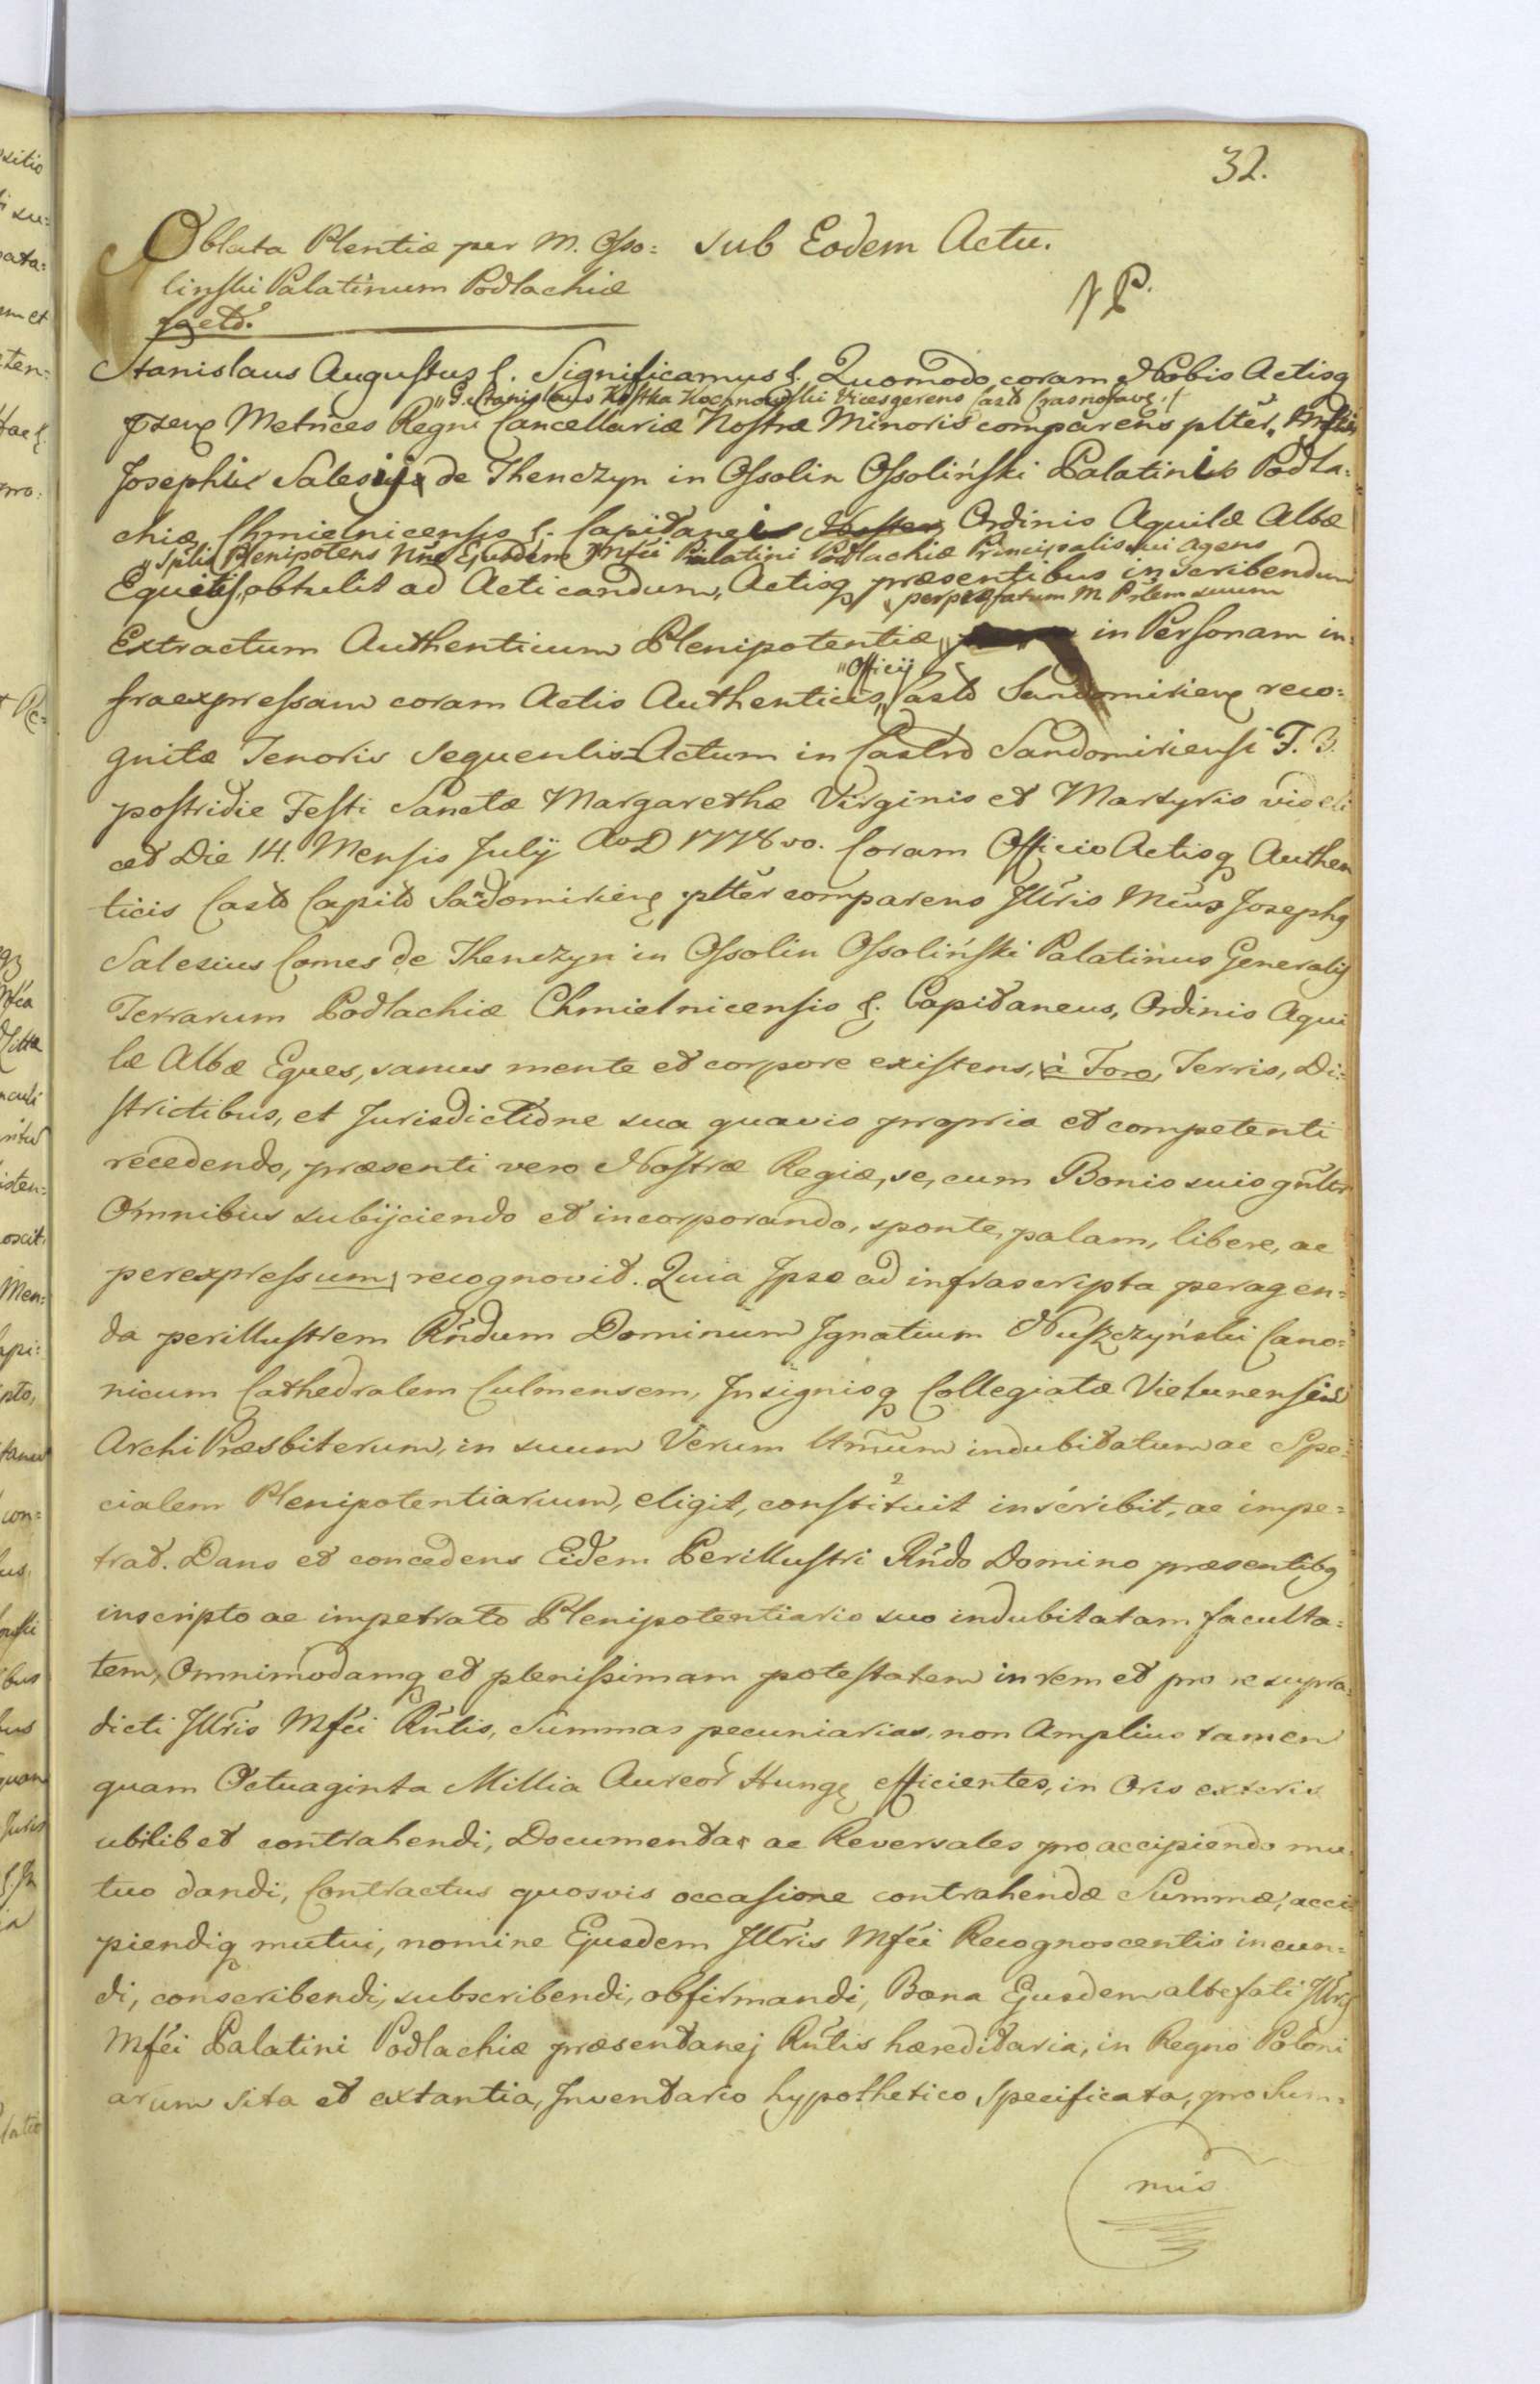 32.
Oblata Plentiæ per M. Osso= Sub Eodem Actu.
linski Palatinum Podlachiæ
factæ.
Stanislaus Augustus &. Significamus &. Quomodo coram Nobis Actisq
"G. Stanislaus Kostka Kochnowski Vicesgerens Castr Crasnostav. /
Metrices Regni Cancellariæ Nostræ Minoris comparens plter, Mfci
Josephi Salesij de Thenczyn in Ossolin Ossoliński Palatinis Podla=
chiæ, Chmielnicensis &. Capitanei Ordinis Aquilæ Albæ
"Splis Plenipotens Nne Ejusdem Mfci Palatini Podlachiæ Principalis sui agens
Equitis, obtulit ad Acticandum, Actisq præsentibus inscribendum
per præfatum M. Prlem suum
Extractum Authenticum Plenipotentiæ, in Personam in=
"Officij
fraexpressam coram Actis Authenticis, Castr Sandomirien reco=
gnitæ Tenoris Sequentis Actum in Castro Sandomiriensi F. 3.
postridie Festi Sanctæ Margarethæ Virginis et Martyris videli
cet Die 14. Mensis Julij AoD 1778vo. Coram Officio Actisq Authen
ticis Castr Capit Sadomirien plter comparens Jllris Mcus Josephg
Salesius Comes de Thenczyn in Ossolin Ossoliński Palatinus Generalis
Terrarum Podlachiæ Chmielnicensis &. Capitaneus, Ordinis Aqui
læ Albæ Eques, sanus mente et corpore existens, à Foro, Terris, Di=
strictibus, et Jurisdictione sua quavis propria et competenti
recedendo, præsenti vero Nostræ Regiæ, se, cum Bonis suis gnltr
Omnibus subijciendo et incorporando, sponte, palam, libere, ac
perexpressum, recognovit. Quia Jpse ad infrascripta peragen=
da perillustrem Rndum Dominum Jgnatium Nuszczyński Cano=
nicum Cathedralem Culmensem, Jnsignisq Collegiatæ Vielunensis
Archi Præsbiterum, in suum Verum Ltmum indubitatum ac Spe=
cialem Plenipotentiarium, eligit, constituit inscribit, ac impe=
trat. Dans et concedens Eidem Perillustri Rndo Domino præsentibg
inscripto ac impetrato Plenipotentiario suo indubitatam faculta=
tem, Omnimodamq et plenissimam potestatem in rem et pro re supra=
dicti Jllris Mfci Rntis, Summas pecuniarias, non Amplius tamen
quam Octuaginta Millia Aureor Hung efficientes, in Oris exteris
ubilibet contrahendi, Documenta ac Reversales pro accipiendo mu=
tuo dandi, Contractus quosvis occasione contrahendæ Summæ, acci
piendiq mutui, nomine Ejusdem Jllris Mfci Recognoscentis ineun=
di, conscribendi, subscribendi, obfirmandi, Bona Ejusdem altefati Jllris
Mfci Palatini Podlachiæ præsentanej Rntis hæreditaria, in Regno Poloni
arum Sita et extantia, Jnventario hypothetico Specificata, pro Sum=
mis